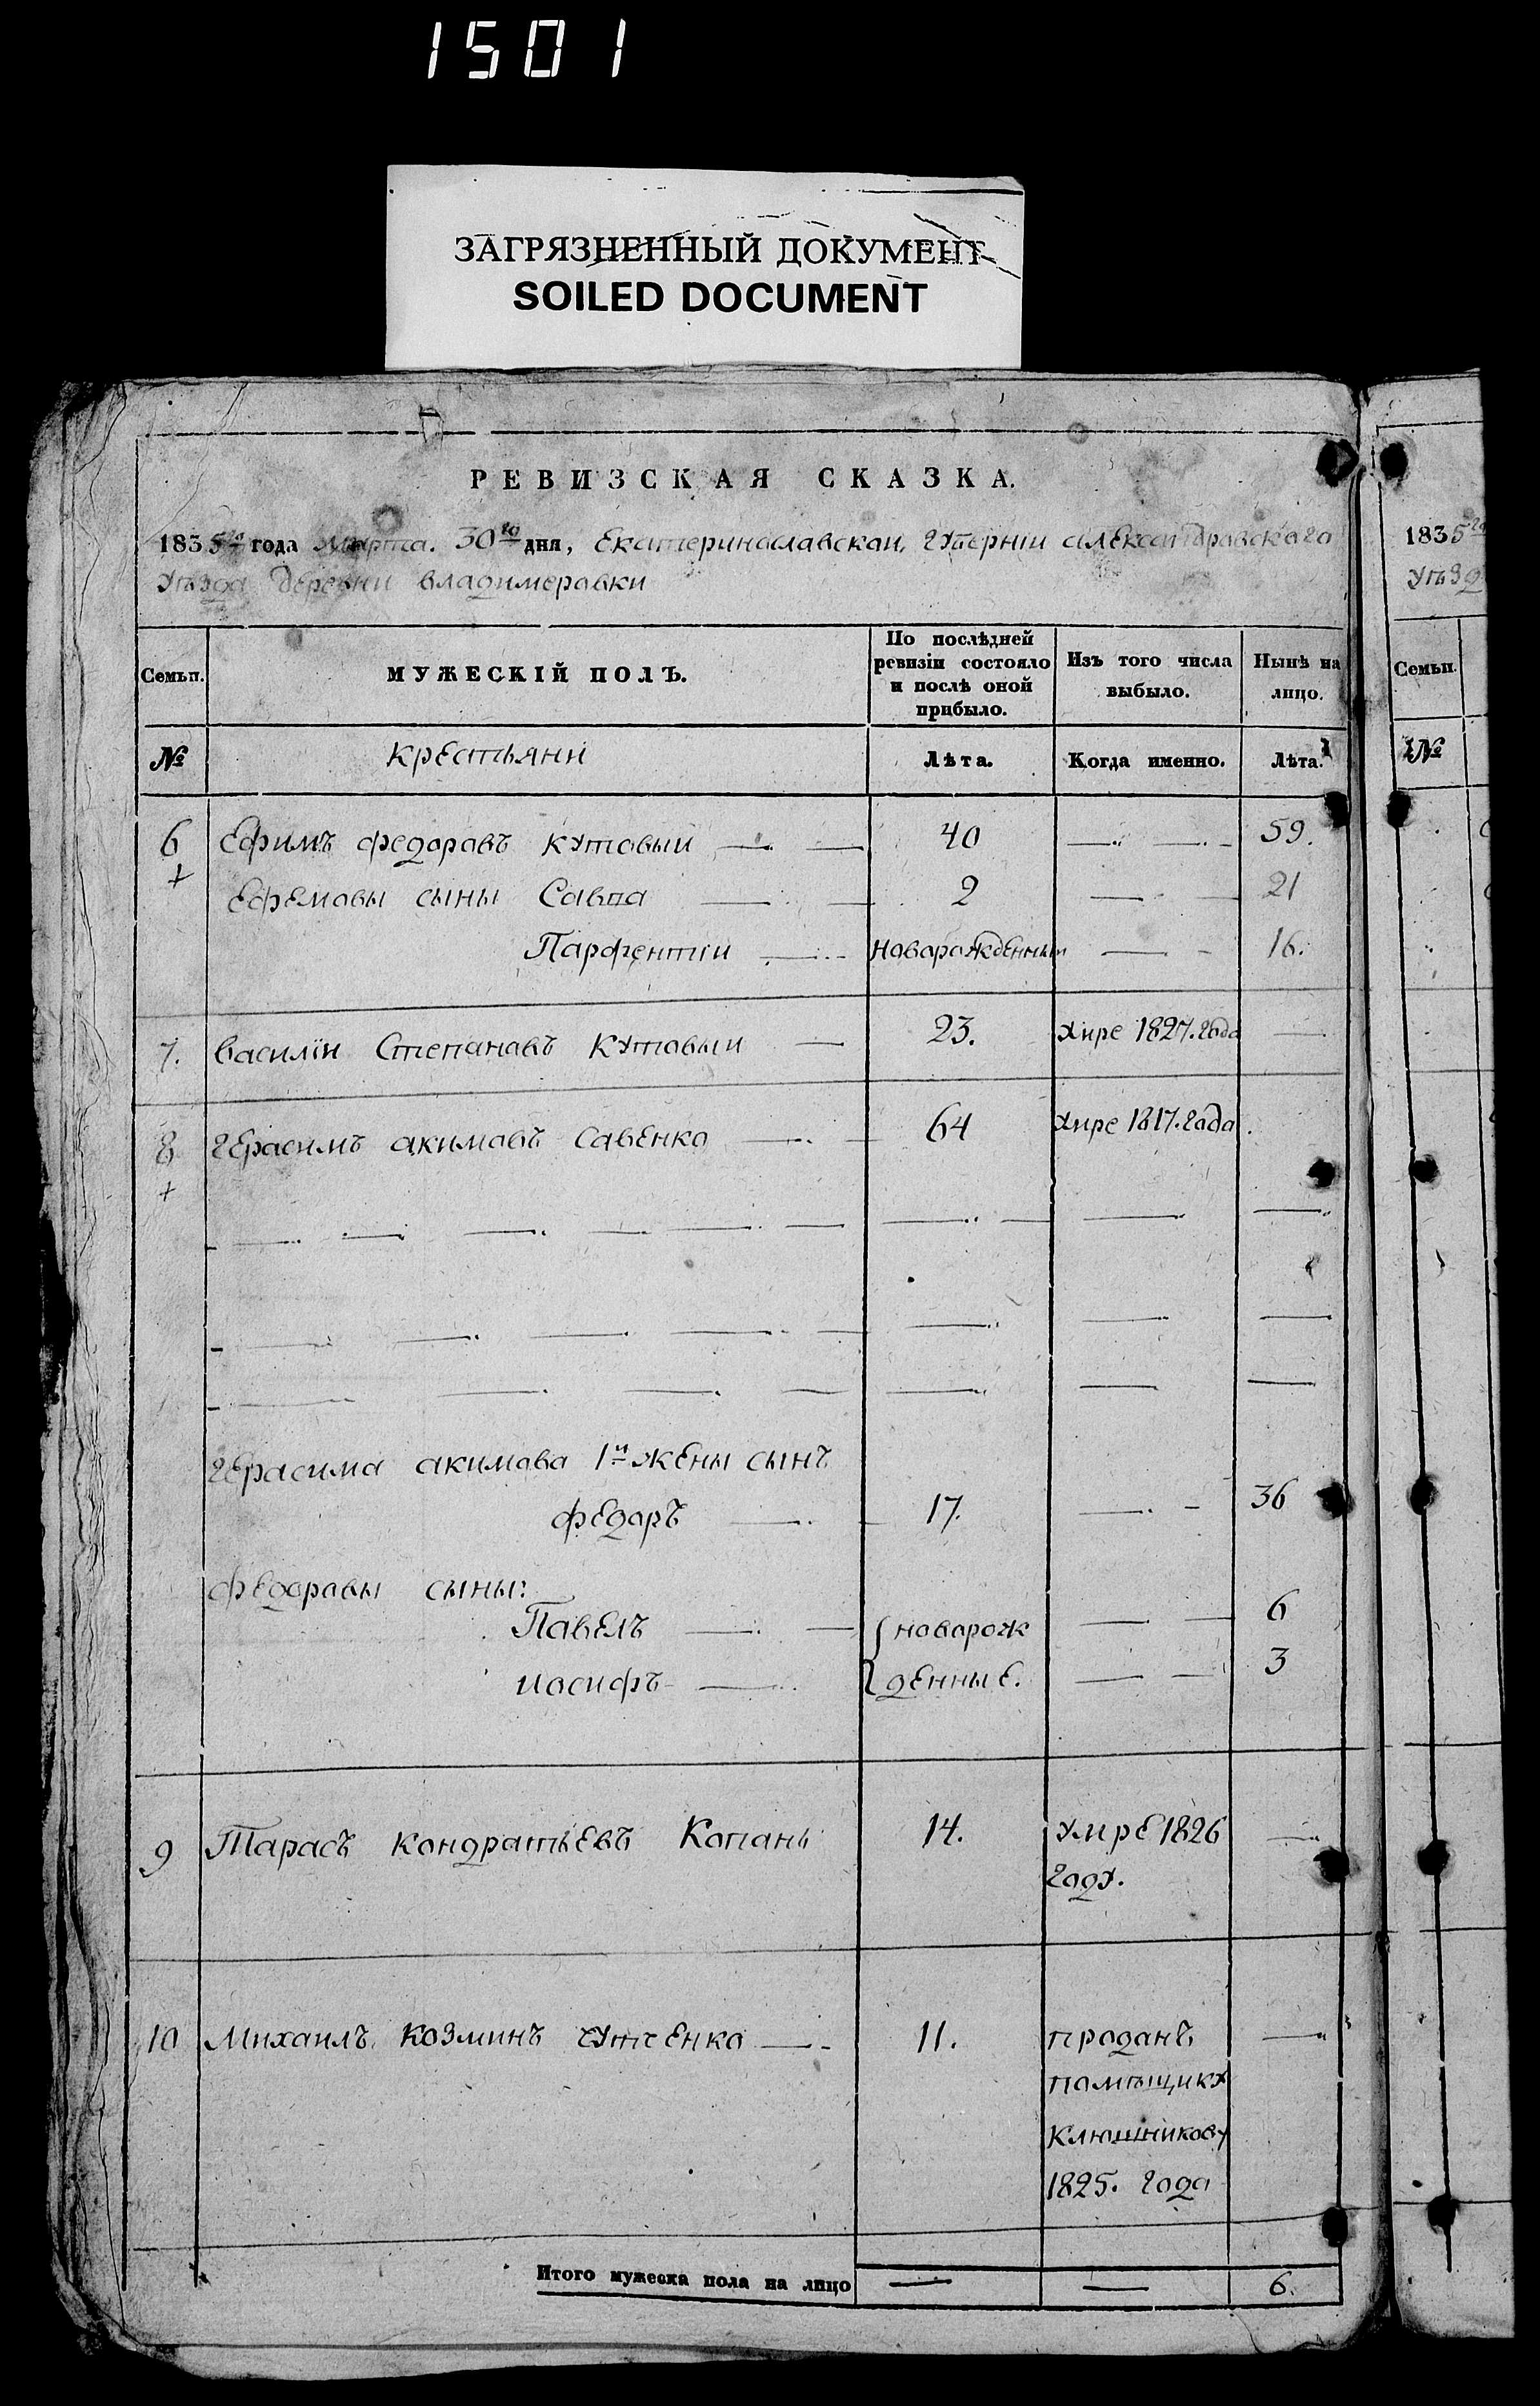 1501
ЗАГРЯЗНЕННЫЙ ДОКУМЕНТ
SOILED DOCUMENT
РЕВИЗСКАЯ СКАЗКА.
1835го года Марта. 30го дня, Екатеринославскаи, губернiи александравскаго
уѣзда деревни владимеравки
Семьи. МУЖЕСКIЙ ПОЛЪ. По послѣдней ревизiи состояло и послѣ оной прибыло. Изъ того числа выбыло. Нынѣ на лицо.
№ крестьяни Лѣта. Когда именно. Лѣта.
6 Ефимъ федаравъ кутовыи 40 59.
Ефемавы сыны Савва 2 21
Парфентiи наварожденныи 16.
7. василiи Степанавъ кутовыи 23. умре 1827. года
8 герасимъ акимавъ савенко 64 умре 1817. года
герасима акимава 1й жены сынъ
федаръ 17. 36
федаравы сыны:
Павелъ новарож 6
иосифъ денные. 3
9 Тарасъ кондратьевъ Копань 14. умре 1826
году.
10 Михаилъ козминъ 11. проданъ
памѣщику
Клюшникову
1825. года
Итого мужеска пола на лицо 6.
1835го
уѣзд
Семьи.
№